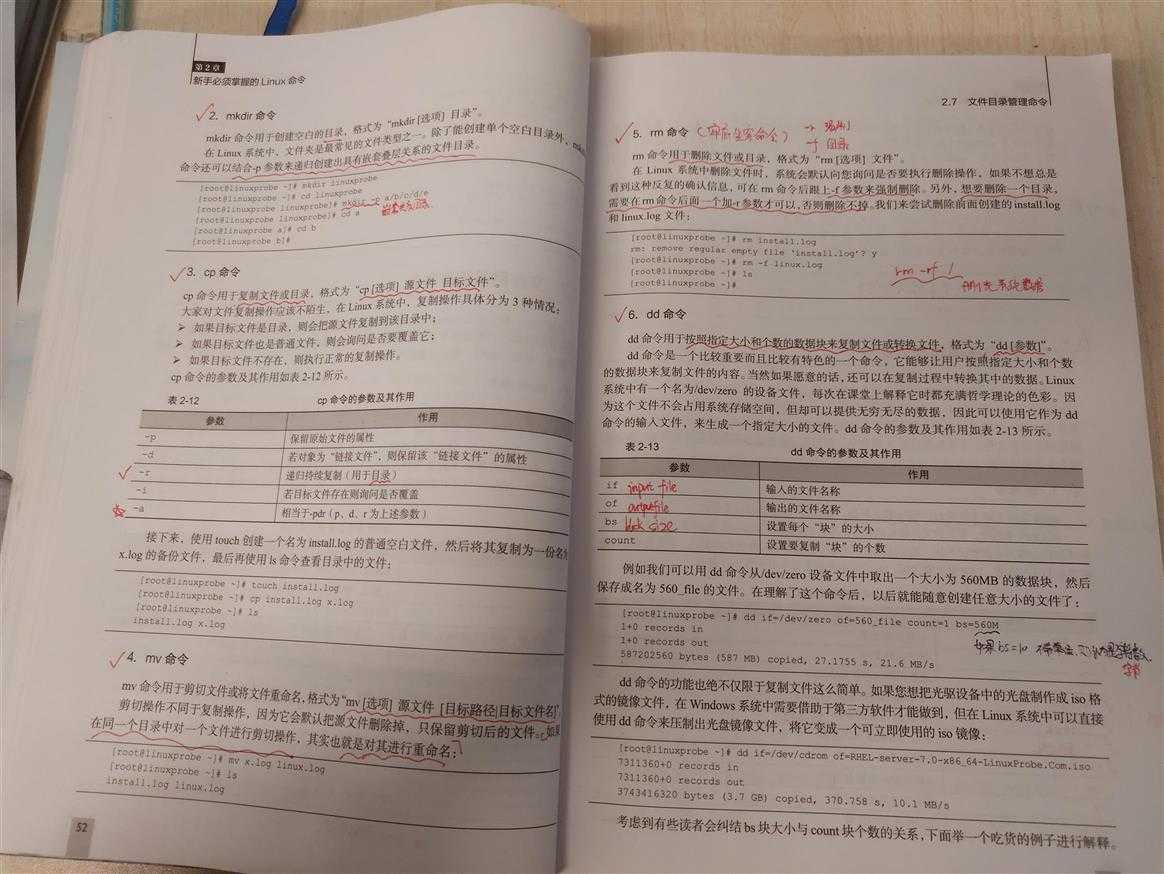 第2章
新手必须掌握的Linux命令
2. mkdir 命令
mkdir 命令用于创建空白的目录，格式为“mkdir [选项] 目录”。
在 Linux 系统中，文件夹是最常见的文件类型之一。除了能创建单个空白目录外，mkdir
命令还可以结合-p 参数来递归创建出具有嵌套叠层关系的文件目录。
[root@linuxprobe ~]# mkdir linuxprobe
[root@linuxprobe ~]# cd linuxprobe
[root@linuxprobe linuxprobe]# mkdir -p a/b/c/d/e
[root@linuxprobe linuxprobe]# cd a
[root@linuxprobe a]# cd b
[root@linuxprobe b]#
3. cp 命令
cp 命令用于复制文件或目录，格式为“cp [选项] 源文件 目标文件”。
大家对文件复制操作应该不陌生，在 Linux 系统中，复制操作具体分为 3 种情况：
➢ 如果目标文件是目录，则会把源文件复制到该目录中；
➢ 如果目标文件也是普通文件，则会询问是否要覆盖它；
➢ 如果目标文件不存在，则执行正常的复制操作。
cp 命令的参数及其作用如表 2-12 所示。
表 2-12 cp 命令的参数及其作用
参数 作用
-p 保留原始文件的属性
-d 若对象为“链接文件”，则保留该“链接文件”的属性
-r 递归持续复制（用于目录）
-i 若目标文件存在则询问是否覆盖
-a 相当于-pdr（p、d、r 为上述参数）
接下来，使用 touch 创建一个名为 install.log 的普通空白文件，然后将其复制为一份名为
x.log 的备份文件，最后再使用 ls 命令查看目录中的文件：
[root@linuxprobe ~]# touch install.log
[root@linuxprobe ~]# cp install.log x.log
[root@linuxprobe ~]# ls
install.log x.log
4. mv 命令
mv 命令用于剪切文件或将文件重命名，格式为“mv [选项] 源文件 [目标路径|目标文件名]”。
剪切操作不同于复制操作，因为它会默认把源文件删除掉，只保留剪切后的文件。如果
在同一个目录中对一个文件进行剪切操作，其实也就是对其进行重命名：
[root@linuxprobe ~]# mv x.log linux.log
[root@linuxprobe ~]# ls
install.log linux.log
52
2.7 文件目录管理命令
5. rm 命令
rm 命令用于删除文件或目录，格式为“rm [选项] 文件”。
在 Linux 系统中删除文件时，系统会默认向您询问是否要执行删除操作，如果不想总是
看到这种反复的确认信息，可在 rm 命令后跟上-f 参数来强制删除。另外，想要删除一个目录，
需要在 rm 命令后面一个加-r 参数才可以，否则删除不掉。我们来尝试删除前面创建的 install.log
和 linux.log 文件：
[root@linuxprobe ~]# rm install.log
rm: remove regular empty file 'install.log'? y
[root@linuxprobe ~]# rm -f linux.log
[root@linuxprobe ~]# ls
[root@linuxprobe ~]#
rm -rf /
6. dd 命令
dd 命令用于按照指定大小和个数的数据块来复制文件或转换文件，格式为“dd [参数]”。
dd 命令是一个比较重要而且比较有特色的一个命令，它能够让用户按照指定大小和个数
的数据块来复制文件的内容。当然如果愿意的话，还可以在复制过程中转换其中的数据。Linux
系统中有一个名为/dev/zero 的设备文件，每次在课堂上解释它时都充满哲学理论的色彩。因
为这个文件不会占用系统存储空间，但却可以提供无穷无尽的数据，因此可以使用它作为 dd
命令的输入文件，来生成一个指定大小的文件。dd 命令的参数及其作用如表 2-13 所示。
表 2-13 dd 命令的参数及其作用
参数 作用
if input file 输入的文件名称
of output file 输出的文件名称
bs block size 设置每个“块”的大小
count 设置要复制“块”的个数
例如我们可以用 dd 命令从/dev/zero 设备文件中取出一个大小为 560MB 的数据块，然后
保存成名为 560_file 的文件。在理解了这个命令后，以后就能随意创建任意大小的文件了：
[root@linuxprobe ~]# dd if=/dev/zero of=560_file count=1 bs=560M
1+0 records in
1+0 records out
587202560 bytes (587 MB) copied, 27.1755 s, 21.6 MB/s
如果bs=10
dd 命令的功能也绝不仅限于复制文件这么简单。如果您想把光驱设备中的光盘制作成 iso 格
式的镜像文件，在 Windows 系统中需要借助于第三方软件才能做到，但在 Linux 系统中可以直接
使用 dd 命令来压制出光盘镜像文件，将它变成一个可立即使用的 iso 镜像：
[root@linuxprobe ~]# dd if=/dev/cdrom of=RHEL-server-7.0-x86_64-LinuxProbe.Com.iso
7311360+0 records in
7311360+0 records out
3743416320 bytes (3.7 GB) copied, 370.758 s, 10.1 MB/s
考虑到有些读者会纠结 bs 块大小与 count 块个数的关系，下面举一个吃货的例子进行解释。